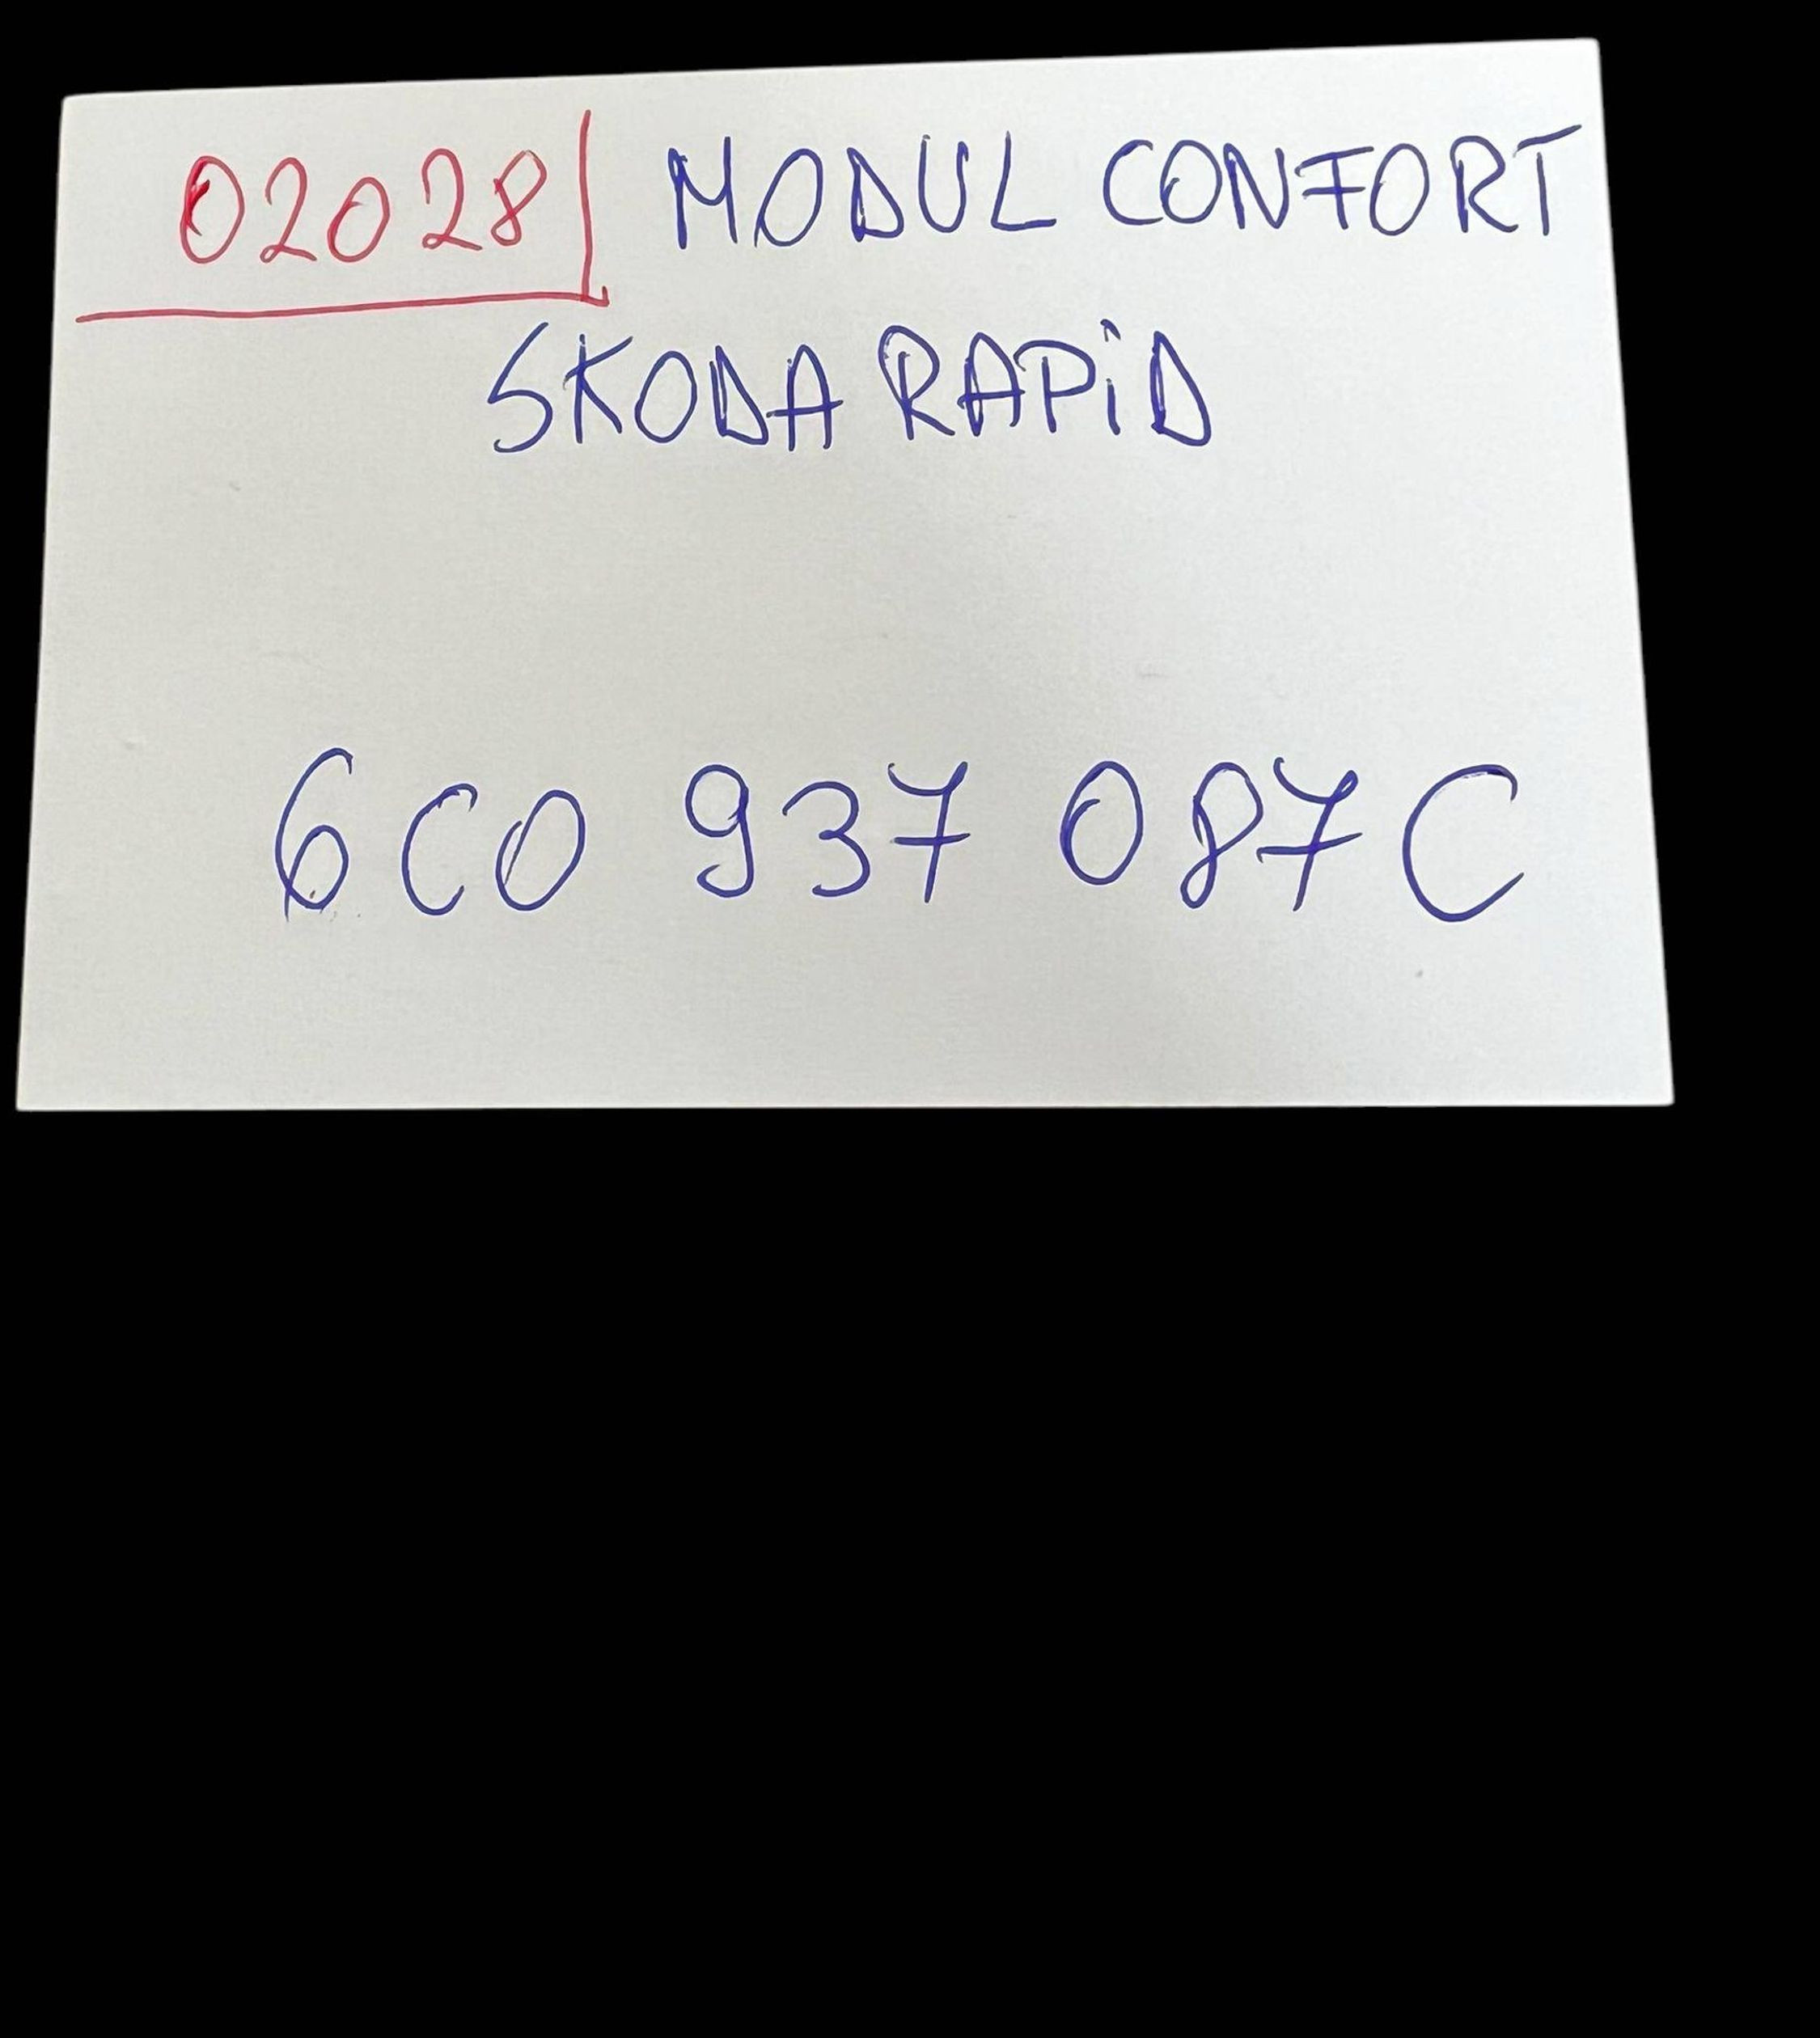 02028 MODUL CONFORT
SKODA RAPiD
6C0 937 087C